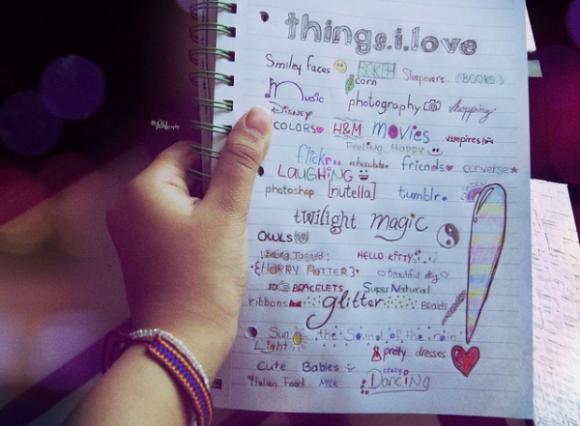 things.i.love
Smiley Faces FOREVER 21 Sleepovers (BOOKS)
corn
music photography shopping
Disney
COLORS H&M MOVIES vampires
Feeling Happy
flickr chocolate friends converse
LAUGHING
photoshop [nutella] tumblr.
twilight magic
OWLS
HELLO KITTY
{HARRY POTTER} beautiful day
BRACELETS SuperNatural
ribbons glitter Braids
Sun the Sound of the rain
Light pretty dresses
cute Babies crazy
Italian Food Milk Dancing